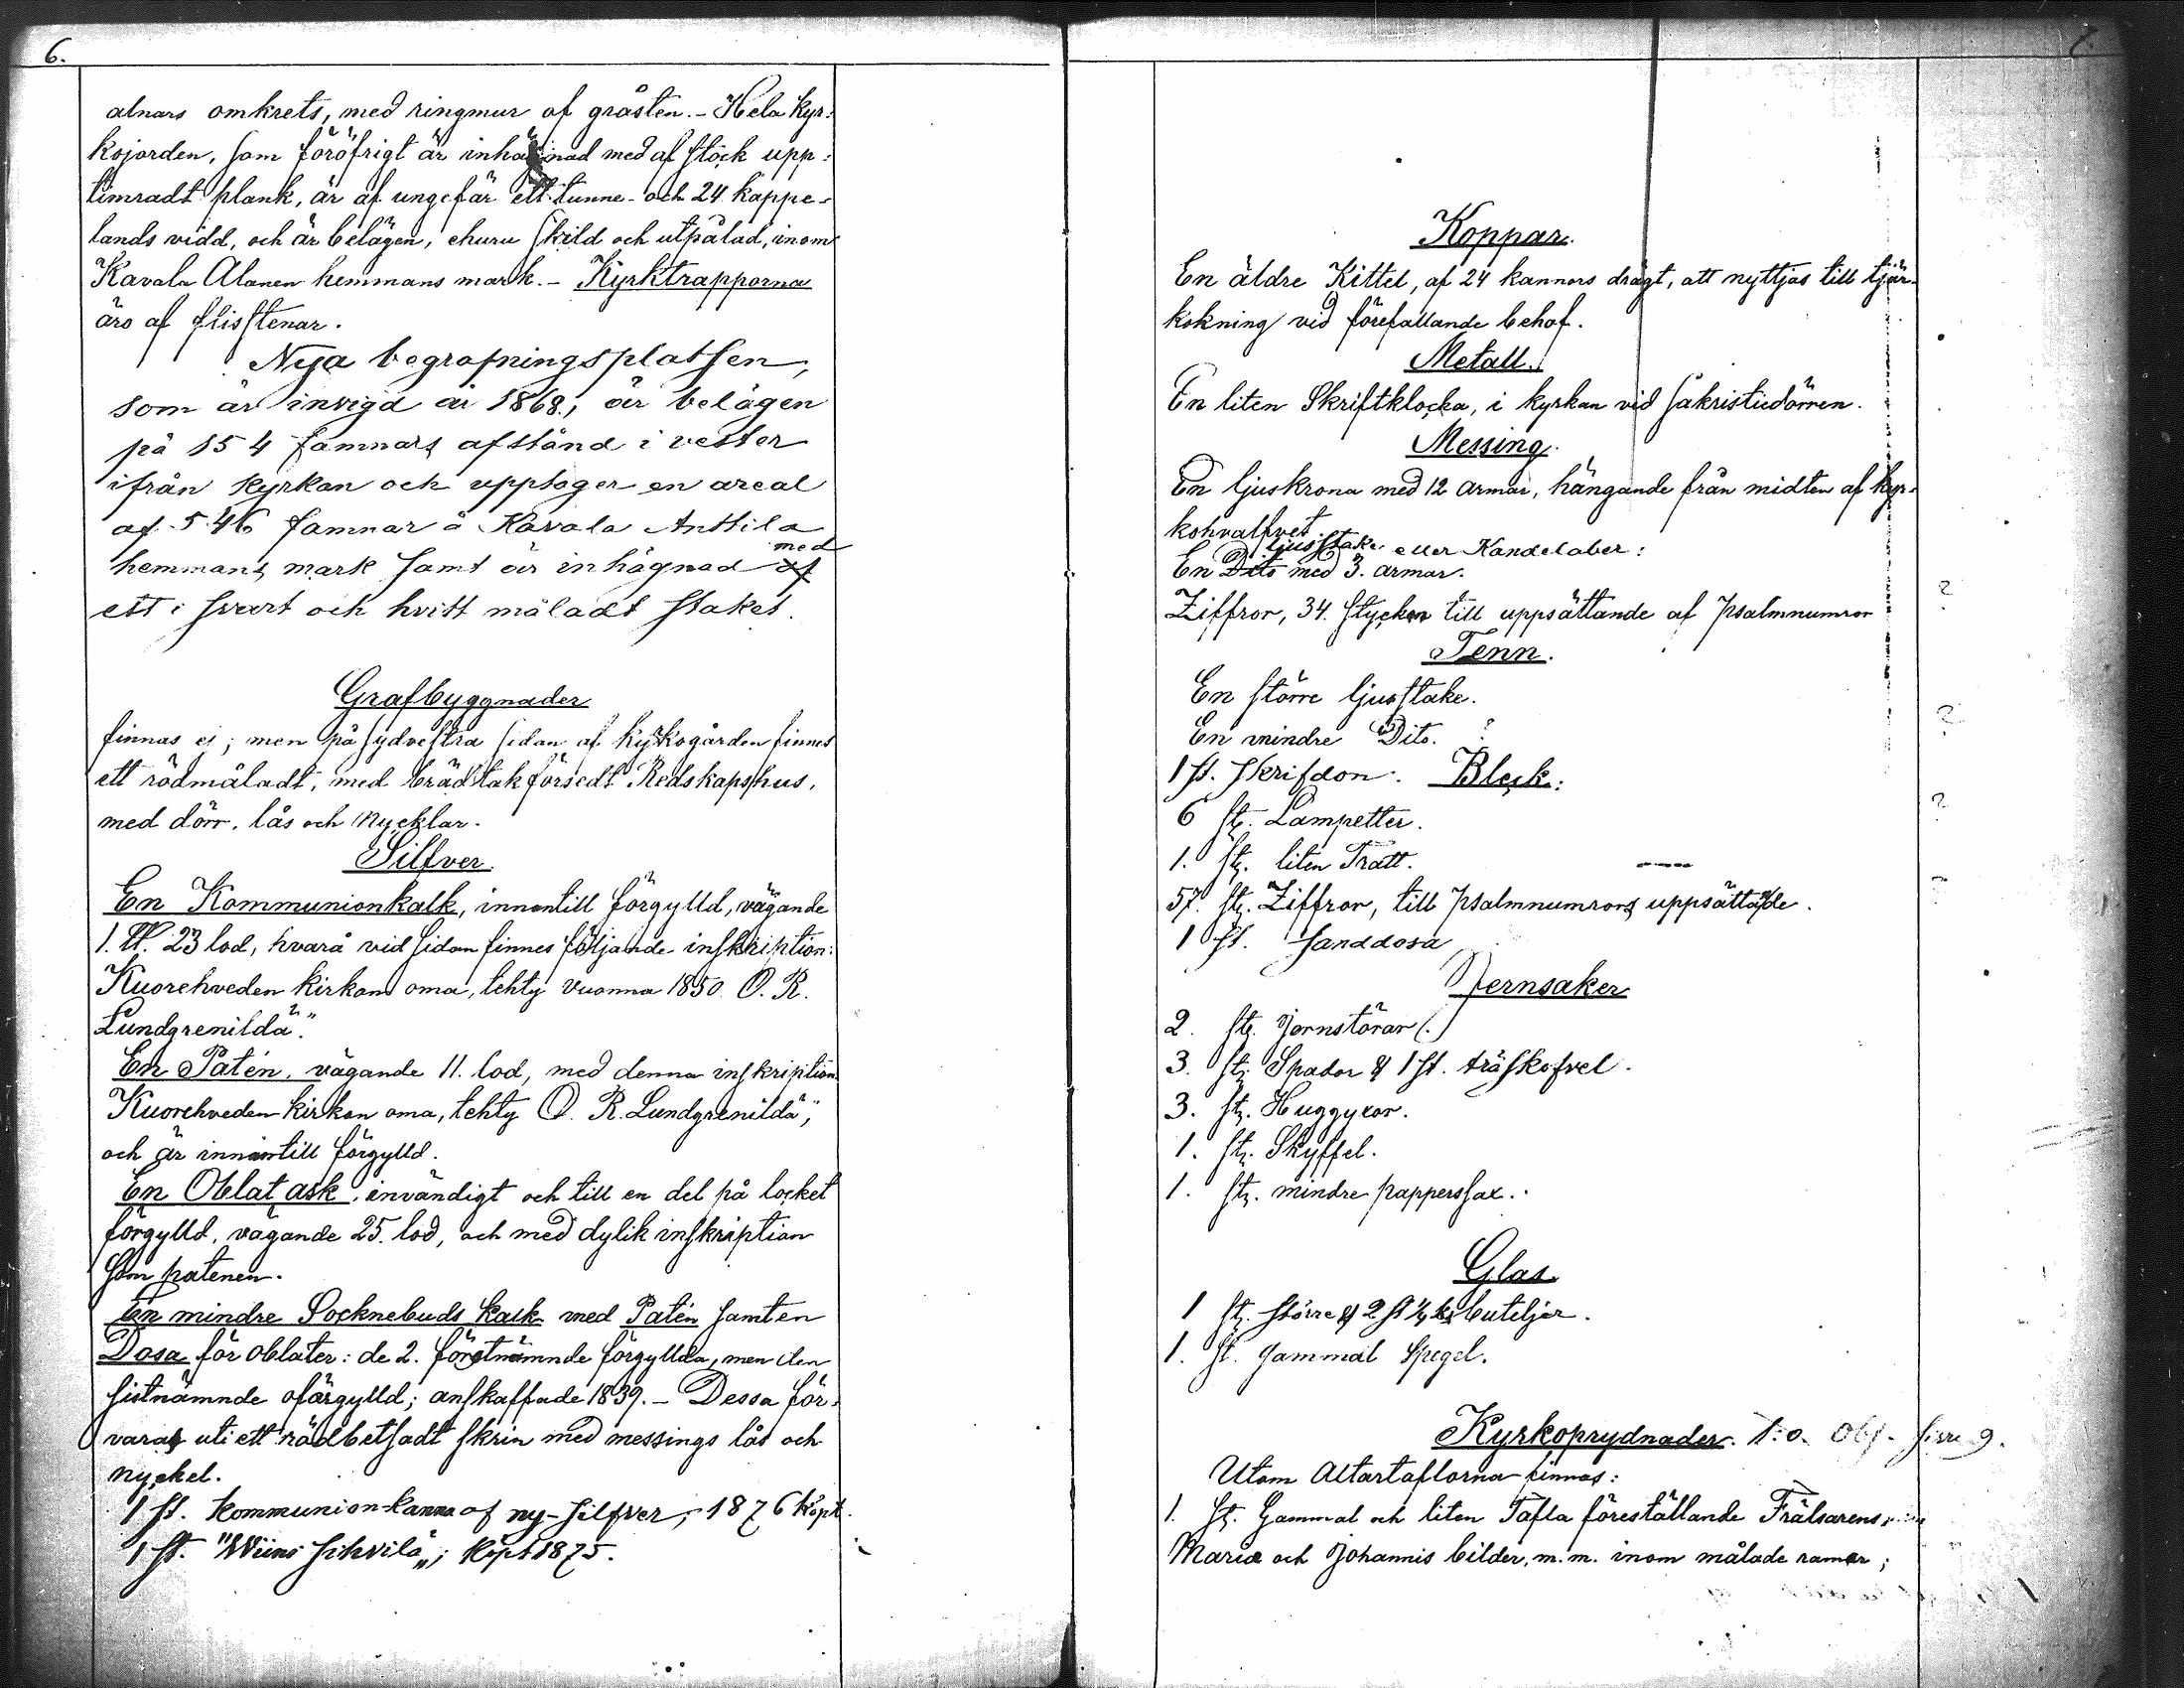 6.
alnars omkrets, med ringmur af gråsten. - Hela kyr:
kojorden, som föröfrigt är inhägnad med af stock upp:
timradt plank, är af ungefär ett tunne- och 24 kappe-
lands vidd, och är belägen, ehuru skild och utpålad, inom
Kavala Alanen hemmans mark. - Kyrktrapporna
äro af flisstenar.
Nya begrafningsplatsen,
som är invigd år 1868, är belägen
på 154 famnars afstånd i vester
ifrån kyrkan och upptager en areal
af 546 famnar å Kavala Anttila
med
hemmans mark samt är inhägnad af
ett i svart och hvitt måladt staket.
Grafbyggnader
finnas ej; men på sydvestra sidan af kyrkogården finnes
ett rödmåladt, med brädtak försedt Redskapshus,
med dörr, lås och nycklar.
Silfver
En Kommunionkalk, innantill förgylld, vägande
1. ℔. 23 lod, hvarå vid sidan finnes följande inskription:
Kuorehveden kirkon oma, tehty vuonna 1850. O. R.
Lundgrenildä".
En Patén, vägande 11. lod, med denna inskription
Kuorehveden kirkon oma, tehty O. R. Lundgrenildä",
och är innantill förgylld.
En Oblatask, invändigt och till en del på locket
förgylld, vägande 25. lod, och med dylik inskription
som patenen.
En mindre Socknebuds kalk med Patén samt en
Dosa för oblater: de 2. förstnämnde förgyllda, men den
sistnämnde oförgylld; anskaffade 1839. - Dessa för-
varas uti ett rödbetsadt skrin med messings lås och
nyckel.
1 st. kommunion-kanna af ny-silfver, 1876 köpt.
1 st. "Wiini sihvilä"; köpt 1875.
7.
Koppar.
En äldre Kittel, af 24 kannors drägt, att nyttjas till tjär-
kokning vid förefallande behof.
Metall.
En liten Skriftklocka, i kyrkan vid sakristiedörren.
Messing.
En ljuskrona med 12 armar, hängande från midten af kyr-
kohvalfvet.
ljusstake eller Kandelaber:
En Dito med 3. armar.
Ziffror, 34. stycken till uppsättande af psalmnumror
Tenn.
En större ljusstake.
En mindre Dito. ?
1 st. skrifdon. Bleck:
6 st. Lampetter.
1. st. liten Tratt.
57. st. Ziffror, till psalmnumrors uppsättande.
1 st. sanddosa
Jernsaker
2. st. Jernstörar
3. st. Spador & 1 st. träskofvel.
3. st. Huggyxor.
1. st. Skyffel.
1. st. mindre papperssax.
Glas.
1 st. större & 2 st ½ buteljer.
1. st. gammal Spegel.
Kyrkoprydnader. 1:o. Obs. 9.
Utom Altartaflorna finnas:
1. st. Gammal och liten Tafla föreställande Frälsarens,
Mariæ och Johannis bilder, m.m. inom målade ramar;
?
?
?
?